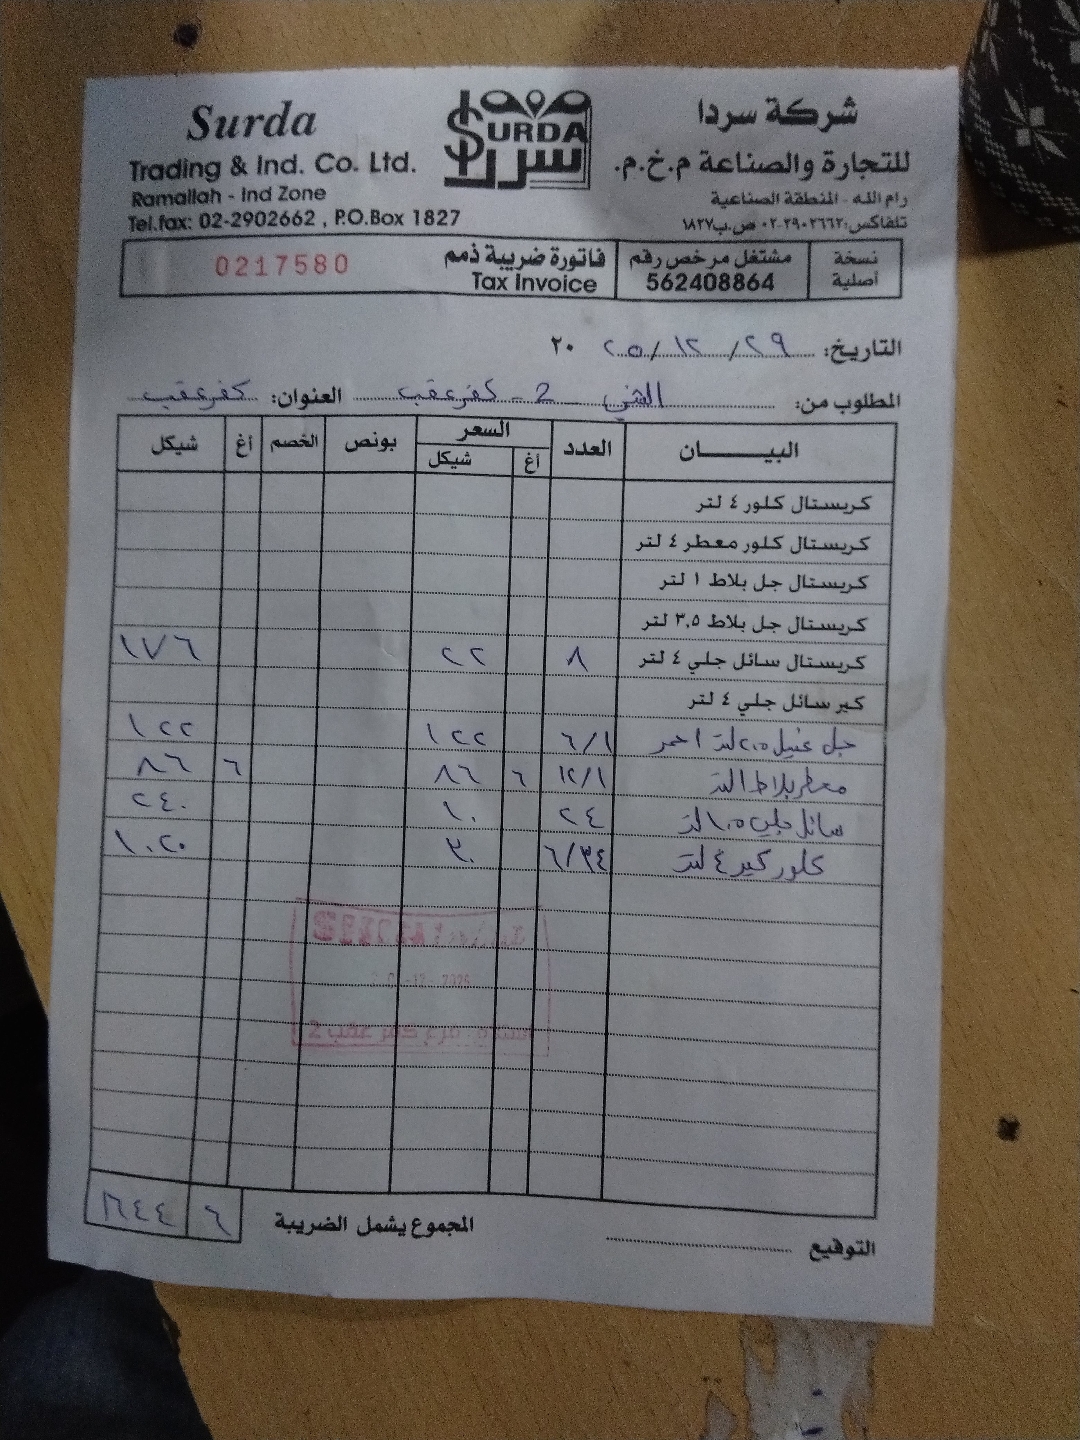 Surda
Trading & Ind. Co. Ltd.
Ramallah - Ind Zone
Tel.fax: 02-2902662 , P.O.Box 1827
SURDA
سردا
شركة سردا
للتجارة والصناعة م.خ.م.
رام الله - المنطقة الصناعية
تلفاكس: ٠٢-٢٩٠٢٦٦٢ ص.ب ١٨٢٧
نسخة أصلية
مشتغل مرخص رقم
562408864
فاتورة ضريبة ذمم
Tax Invoice
0217580
التاريخ: ٢٩ / ١٢ / ٢٥ ٢٠
المطلوب من: 2 - كفر عقب العنوان: كفر عقب
البيــــــان العدد السعر بونص الخصم أغ شيكل
أغ شيكل
كريستال كلور ٤ لتر
كريستال كلور معطر ٤ لتر
كريستال جل بلاط ١ لتر
كريستال جل بلاط ٣,٥ لتر
كريستال سائل جلي ٤ لتر ٨ ٢٢ ١٧٦
كير سائل جلي ٤ لتر
جل غسيل ٢,٥ لتر احمر ٦/١ ١٢٢ ١٢٢
معطر بلاط ١ لتر ١٢/١ ٦ ٨٦ ٦ ٨٦
سائل جلي ١,٥ لتر ٢٤ ١٠ ٢٤٠
كلور كير ٤ لتر ٦/٣٤ ٣٠ ١٠٢٠
2025
فرع كفر عقب 2
المجموع يشمل الضريبة ٦ ١٦٤٤
التوقيع